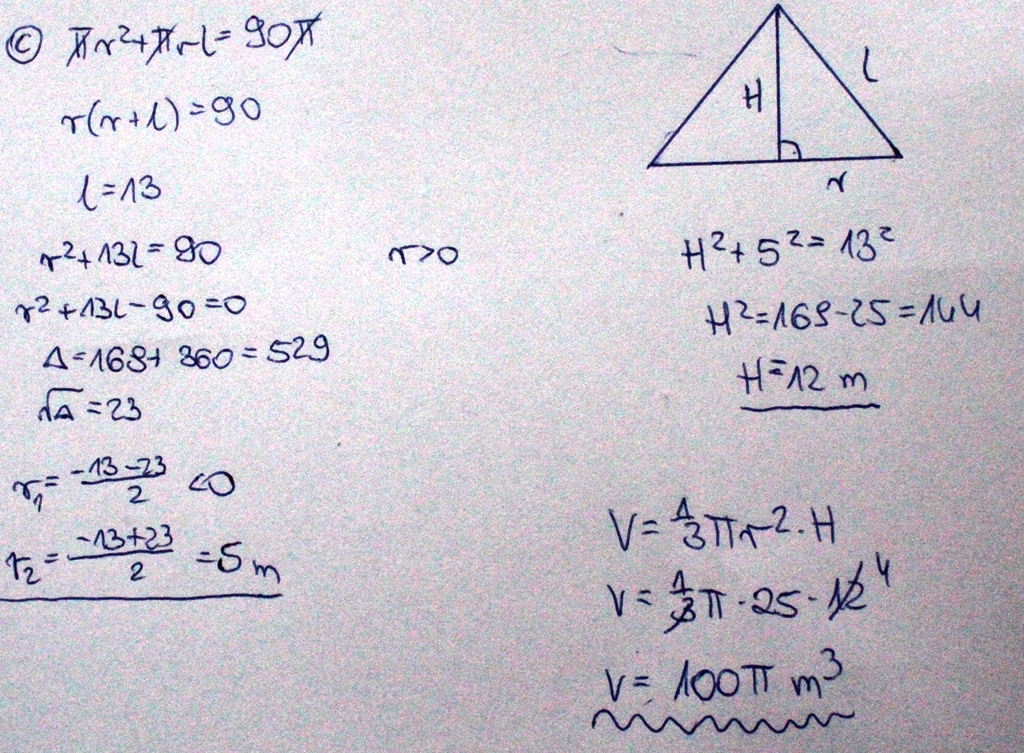 © πr²+πrl=90π
r(r+l)=90
l=13
r²+13l=90
r>0
r²+13l-90=0
Δ=169+360=529
√Δ=23
r₁=(-13-23)/2 <0
r₂=(-13+23)/2=5m
H
l
r
H²+5²=13²
H²=169-25=144
H=12 m
V=1/3πr²·H
V=1/3π·25·12 4
V=100π m³